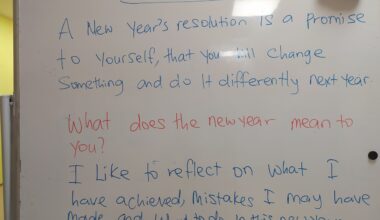 A New Year's resolution is a promise
to yourself, that you will change
Something and do it differently next year.
What does the new year mean to
you?
I Like to reflect on what I
have achieved, mistakes I may have
made and